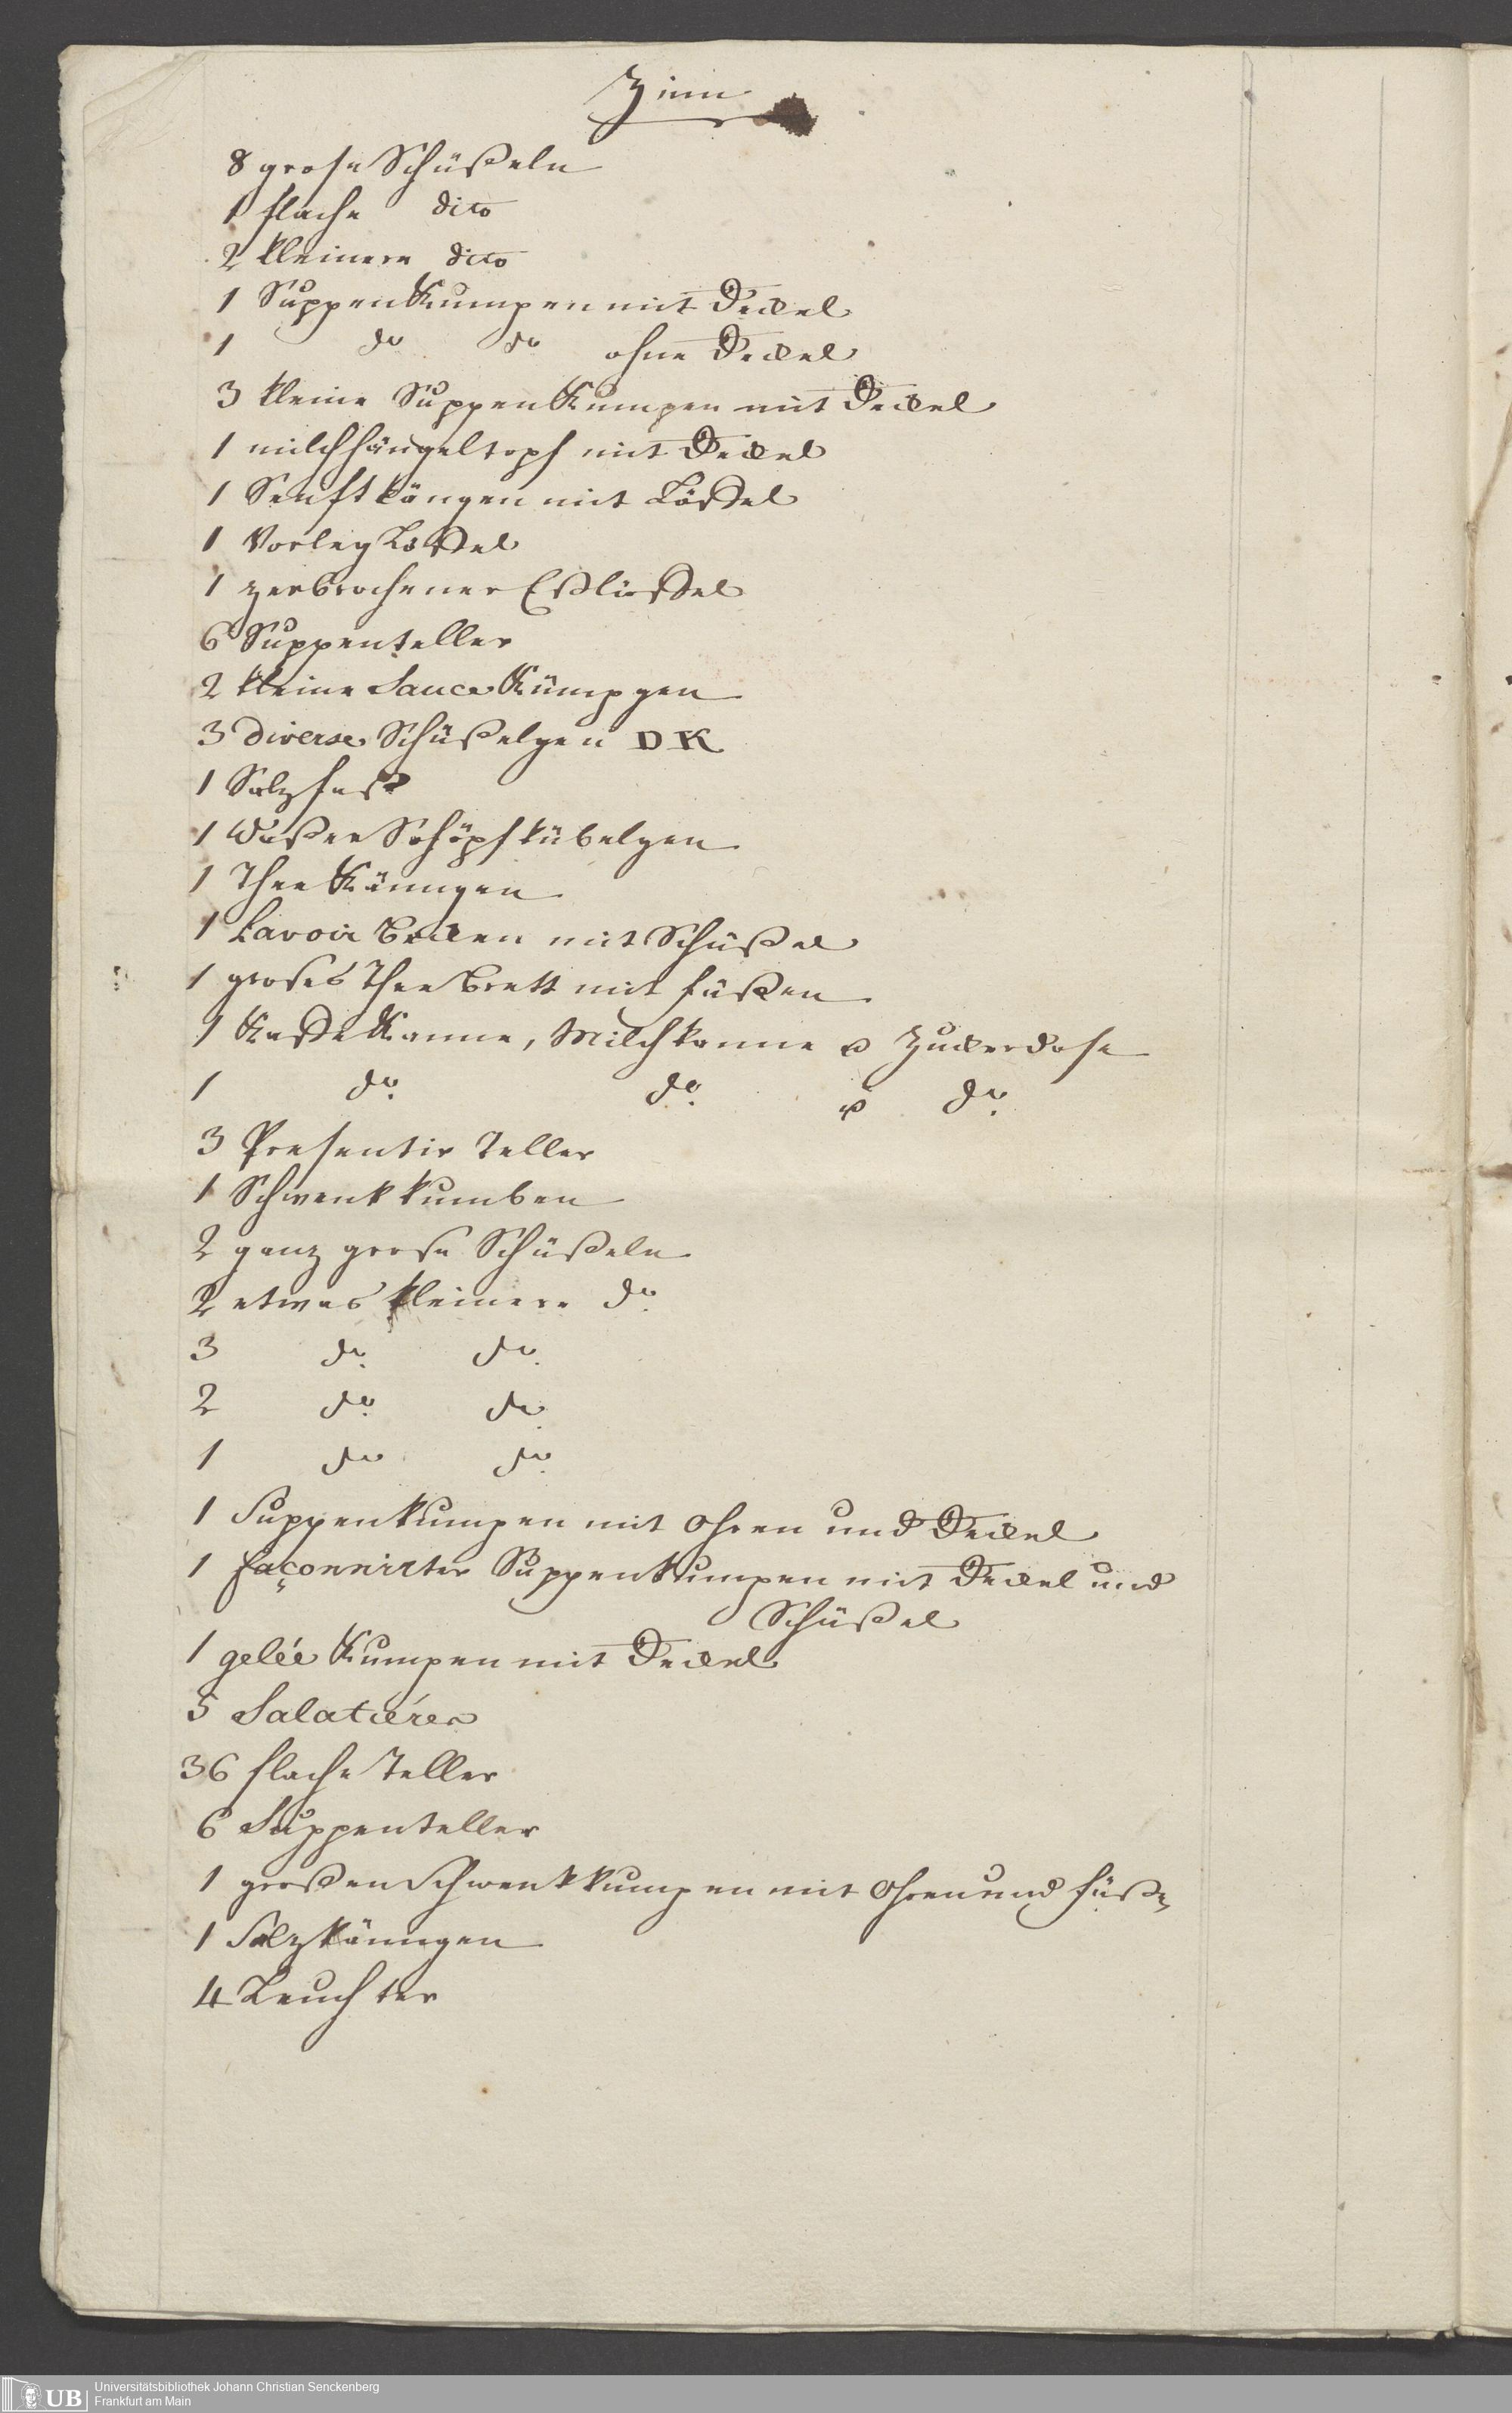 Zinn
8 grose Schüßeln
1 flache dito
2 kleinere dito
1 Suppen Kumpen mit Deckel
1 do do ohne Deckel
3 kleine Suppen Kumpen mit Deckel
1 milchhängeltopf mit Deckel
1 Senftkängen mit Löffel
1 Vorleg Löffel
1 zerbrochener Eßlöffel
6 Suppenteller
2 kleine Sauce Kümpgen
3 diverse Schüßelgen DK
1 Salzfaß
1 Waßer Schöpfkübelgen
1 Thee Känngen
1 Lavoir Becken mit Schüßel
1 großes Thee Brett mit füßen
1 Kaffe Kanne, Milchkanne u Zuckerdose
1 do. do. u do.
3 Presentir Teller
1 Schwenkkumben
2 ganz grose Schüßeln
2 etwas kleinere do.
3 do. do.
2 do. do.
1 do. do.
1 Suppenkumpen mit Ohren und Deckel
1 façonnirter Suppenkumpen mit Deckel und
Schüßel
1 gelée Kumpen mit Deckel
5 Salatiéres
36 flache Teller
6 Suppenteller
1 großen Schwenkkumpen mit Ohren und füße
1 Salzkänngen
4 Leuchter
UB
Universitätsbibliothek Johann Christian Senckenberg
Frankfurt am Main